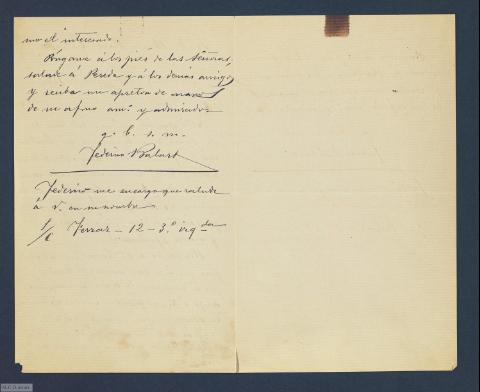 mo el interesado.
Póngame á los piés de las Señoras,
salude á Pereda y á los demás amigos
y reciba un apretón de manos
de su afmo. am.º y admirador
q. b. s. m.
Federico Balart
Federico me encarga que salude
á V. en su nombre
S/C Ferraz – 12 – 3.º izqda